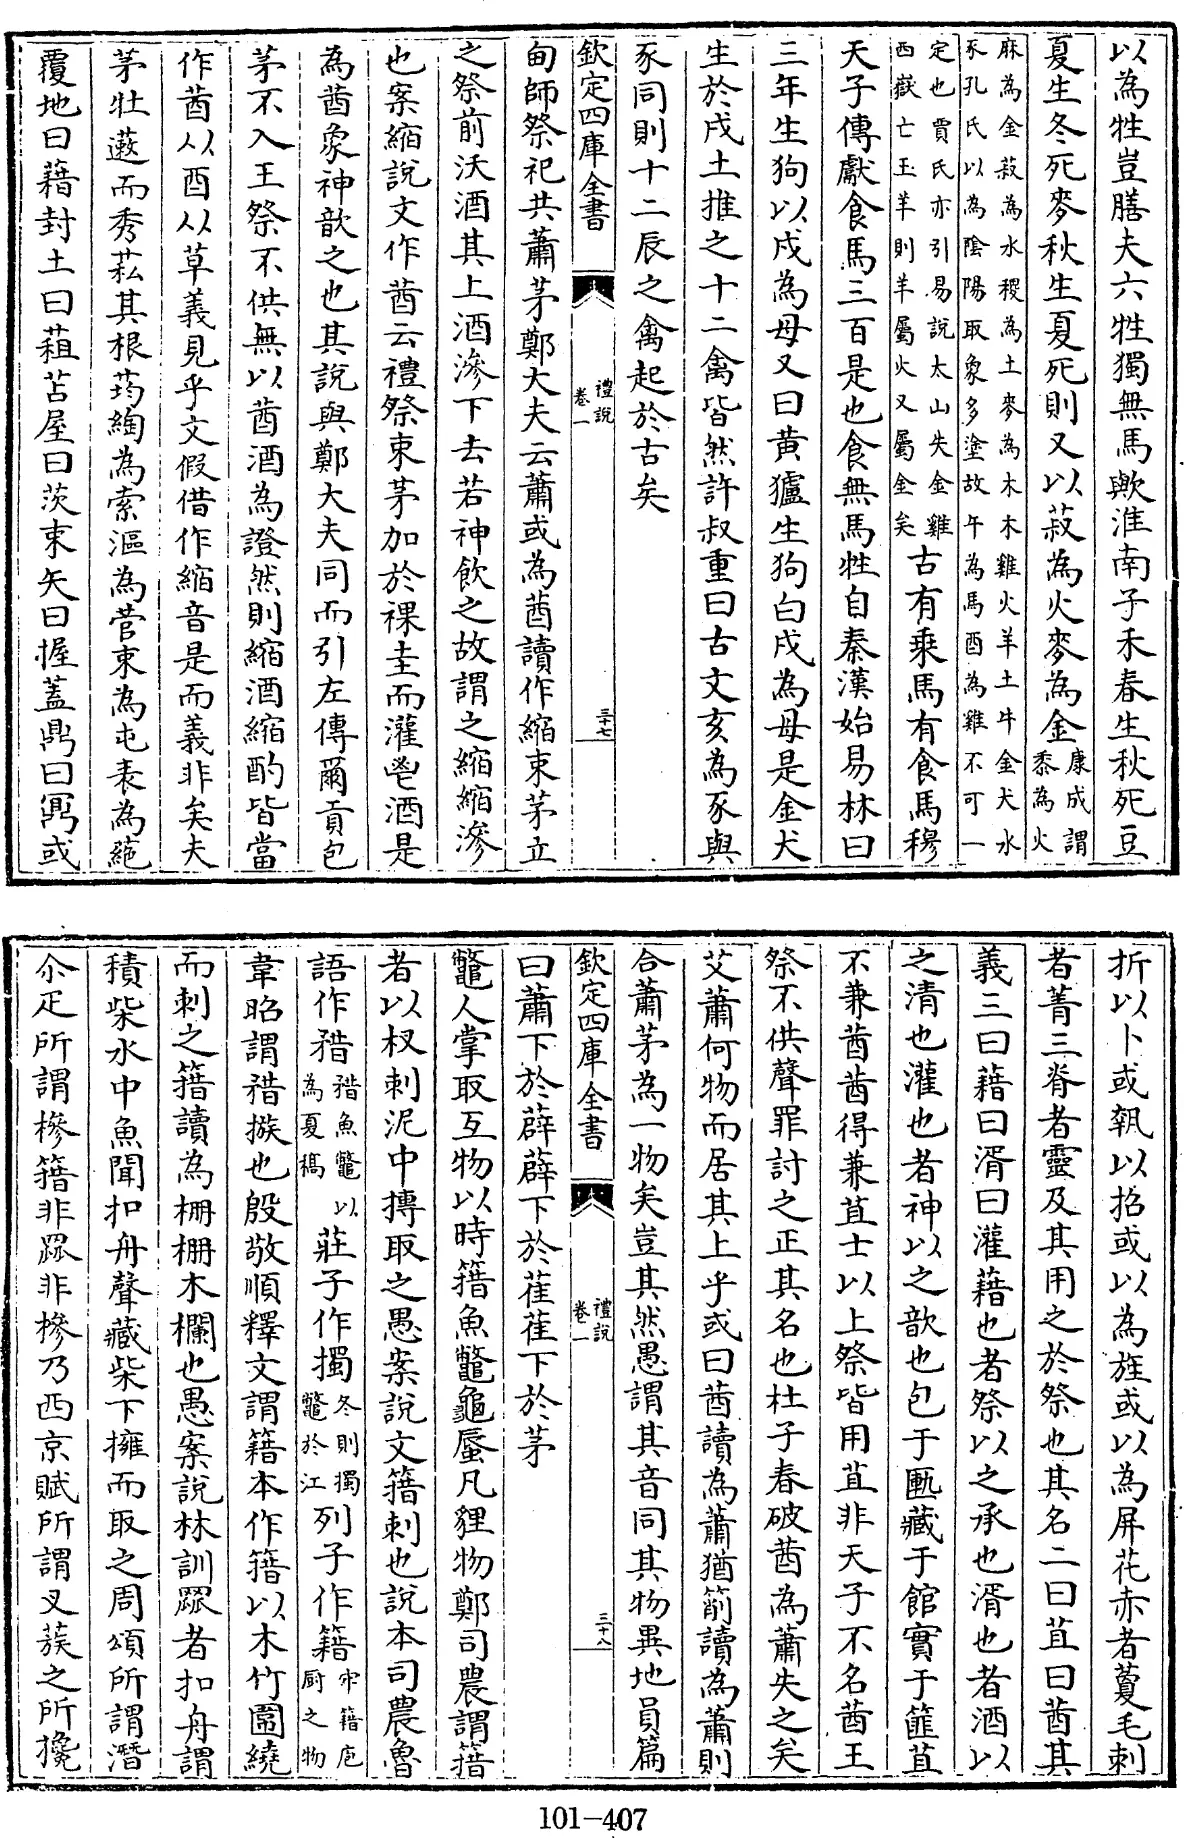 以為牲豈膳夫六牲獨無馬歟淮南子禾春生秋死豆
夏生冬死麥秋生夏死則又以菽為火麥為金康成謂黍為火
麻為金菽為水稷為土麥為木木雞火羊土牛金犬水豕孔氏以為陰陽取象多塗故午為馬酉為雞不可一
定也賈氏亦引易說太山失金雞西嶽亡玉羊則羊屬火又屬金矣古有乘馬有食馬穆
天子傳獻食馬三百是也食無馬牲自秦漢始易林曰
三年生狗以戌為母又曰黃獹生狗白戌為母是金犬
生於戌土推之十二禽皆然許叔重曰古文亥為豕與
豕同則十二辰之禽起於古矣
欽定四庫全書
禮說
卷一
三十七
甸師祭祀共蕭茅鄭大夫云蕭或為莤讀作縮束茅立
之祭前沃酒其上酒滲下去若神飲之故謂之縮縮滲
也案縮說文作莤云禮祭束茅加於祼圭而灌鬯酒是
為莤象神歆之也其說與鄭大夫同而引左傳爾貢包
茅不入王祭不供無以莤酒為證然則縮酒縮酌皆當
作莤从酉从草義見乎文假借作縮音是而義非矣夫
茅牡蔜而秀菾其根药綯為索漚為菅束為屯表為蕝
覆地曰藉封土曰蒩苫屋曰茨束矢曰握蓋鼎曰鼏或
折以卜或執以招或以為旌或以為屏花赤者藑毛刺
者菁三脊者靈及其用之於祭也其名二曰苴曰莤其
義三曰藉曰湑曰灌藉也者祭以之承也湑也者酒以
之清也灌也者神以之歆也包于匭藏于館實于篚苴
不兼莤莤得兼苴士以上祭皆用苴非天子不名莤王
祭不供聲罪討之正其名也杜子春破莤為蕭失之矣
艾蕭何物而居其上乎或曰莤讀為蕭猶箾讀為蕭則
合蕭茅為一物矣豈其然愚謂其音同其物異地員篇
欽定四庫全書
禮說
卷一
三十八
曰蕭下於薜薜下於萑萑下於茅
鼈人掌取互物以時簎魚鼈龜蜃凡貍物鄭司農謂簎
者以杈刺泥中搏取之愚案說文簎刺也說本司農魯
語作矠矠魚鼈以為夏槁莊子作擉冬則擉鼈於江列子作籍牢籍庖廚之物
韋昭謂矠㨖也殷敬順釋文謂籍本作簎以木竹圍繞
而刺之簎讀為柵柵木欄也愚案說林訓罧者扣舟謂
積柴水中魚聞扣舟聲藏柴下擁而取之周頌所謂潛
尒疋所謂槮簎非罧非槮乃西京賦所謂叉蔟之所攙
101-407